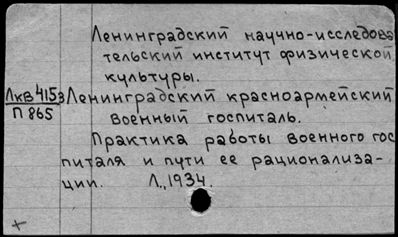 Ленинградский научно-исследова
тельский институт физической
культуры.
ЛкВ 4153 Ленинградский красноармейский
П 865 военный госпиталь.
Практика работы военного гос
питаля и пути ее рационализа-
ции. Л., 1934.
+